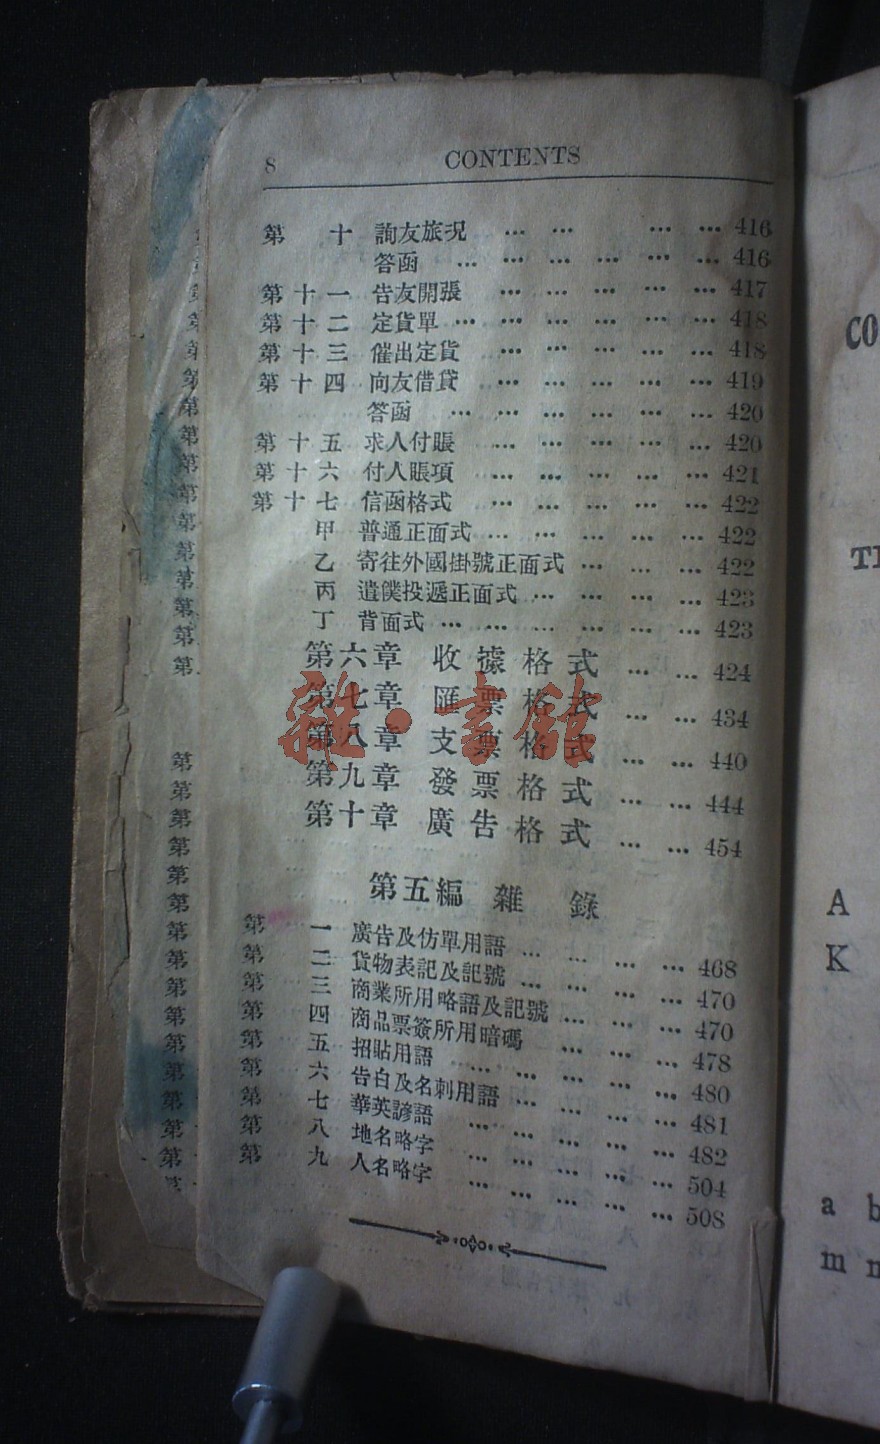 8 CONTENTS
第 十 詢友旅況 … … … … 416
答函 … … … … … … 416
第十一 告友開張 … … … … … 417
第十二 定貨單 … … … … … … 418
第十三 催出定貨 … … … … … 418
第十四 向友借貸 … … … … … 419
答函 … … … … … … 420
第十五 求人付賬 … … … … … 420
第十六 付人賬項 … … … … … 421
第十七 信函格式 … … … … … 422
甲 普通正面式 … … … … … 422
乙 寄往外國掛號正面式 … … … 422
丙 遣僕投遞正面式 … … … … 423
丁 背面式 … … … … … … 423
第六章 收據格式 … … 424
第七章 匯票格式 … … 434
第八章 支票格式 … … 440
第九章 發票格式 … … 444
第十章 廣告格式 … … 454
第五編 雜錄
第 一 廣告及仿單用語 … … … … 468
第 二 貨物表記及記號 … … … … 470
第 三 商業所用略語及記號 … … … 470
第 四 商品票簽所用暗碼 … … … 478
第 五 招貼用語 … … … … … 480
第 六 告白及名刺用語 … … … … 481
第 七 華英諺語 … … … … … 482
第 八 地名略字 … … … … … 504
第 九 人名略字 … … … … … 508
雜·書館
CO
A
K
a b
m n